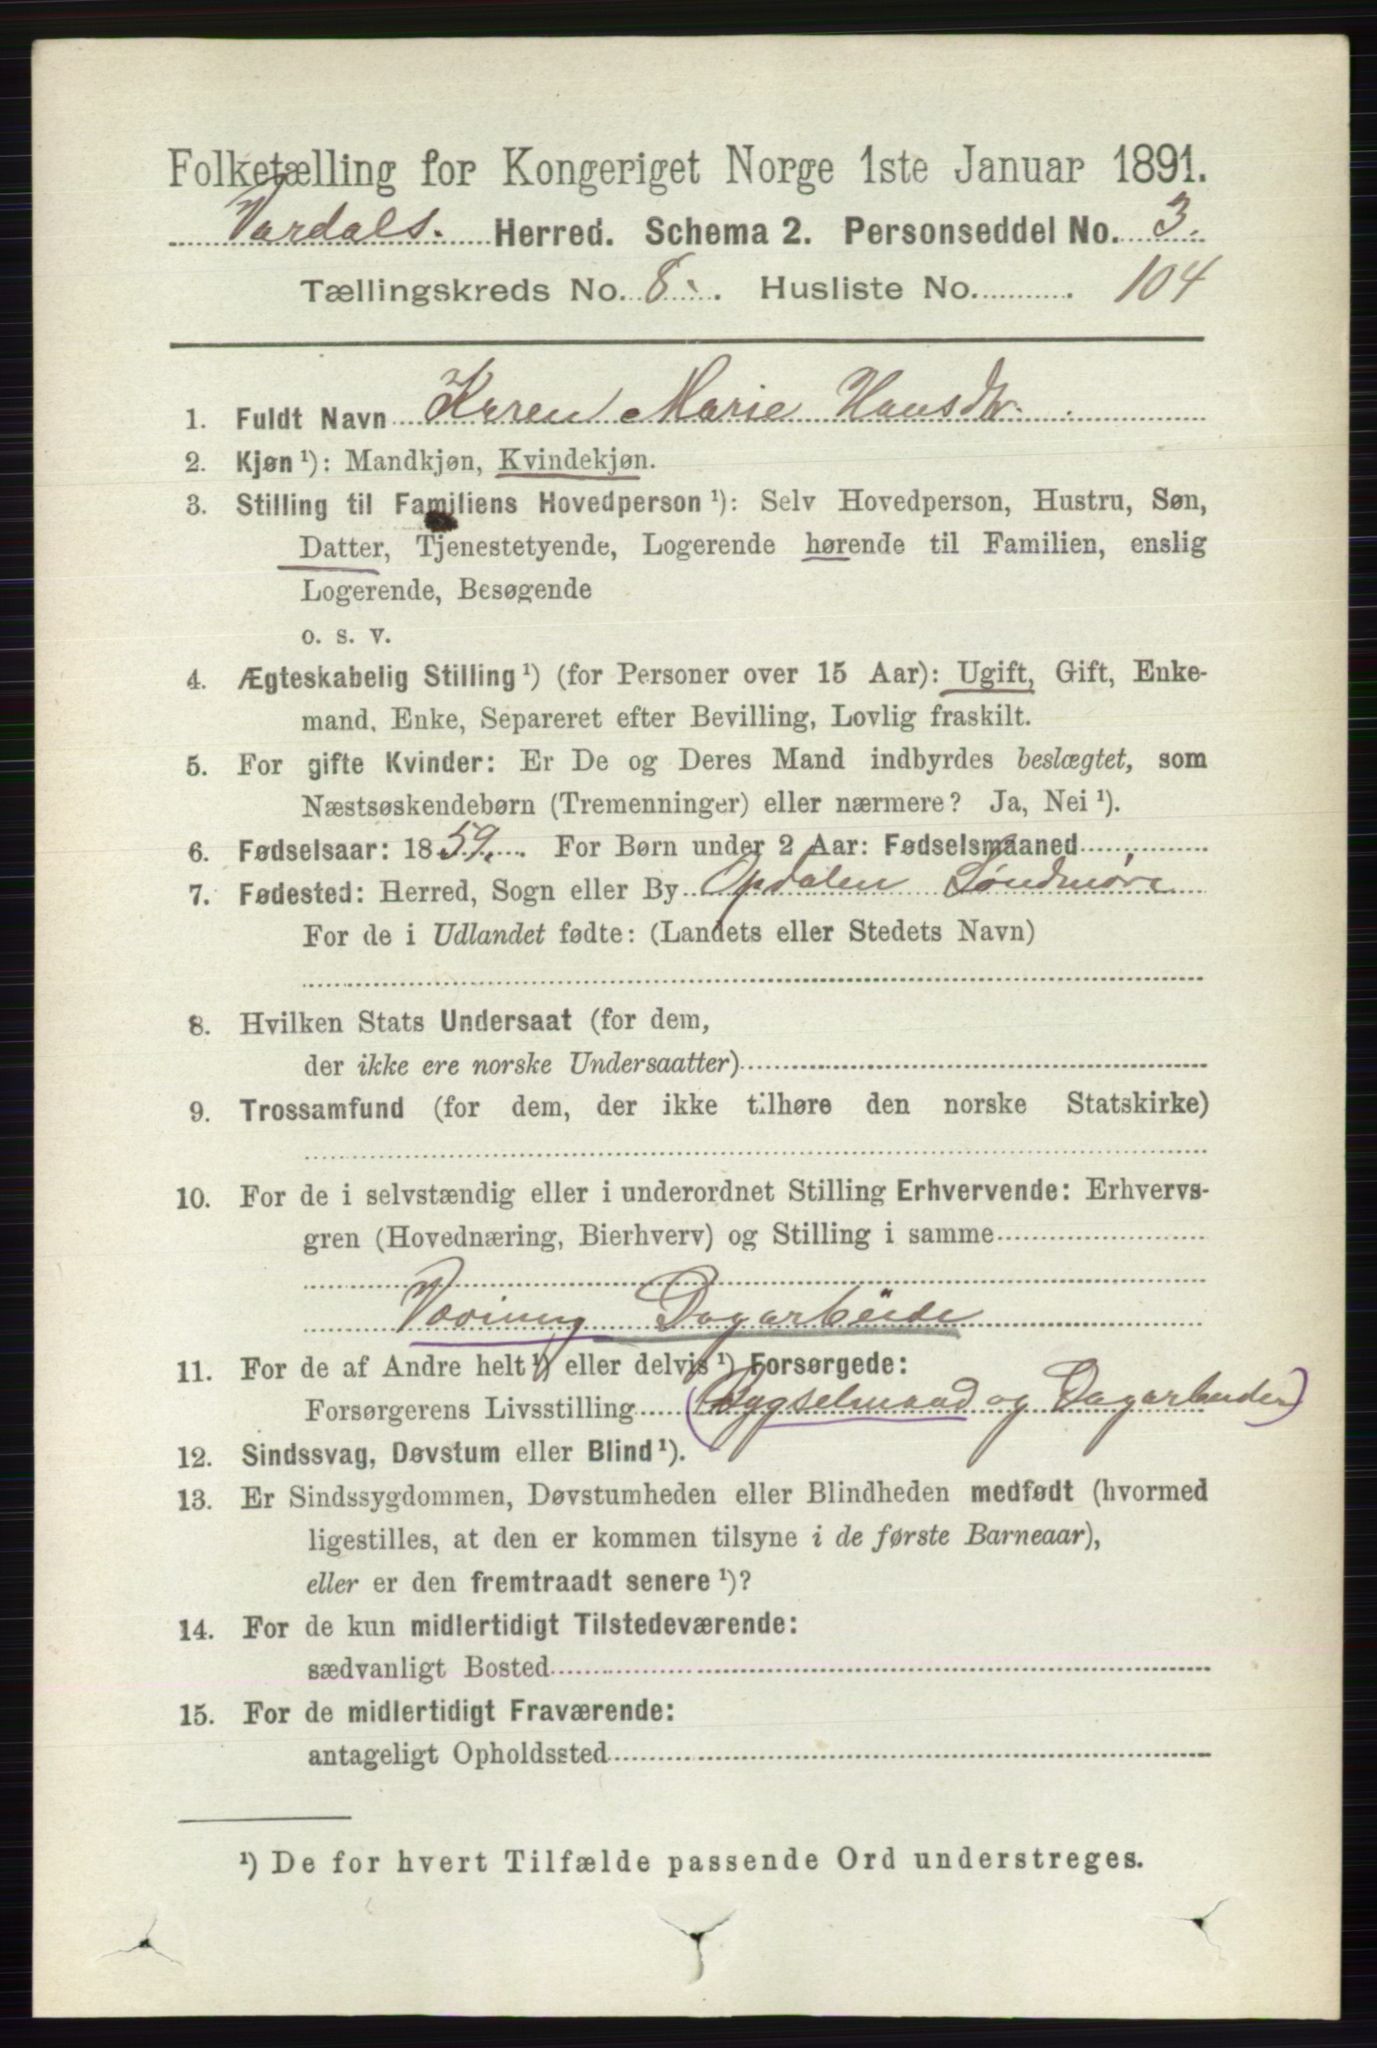 Folketælling for Kongeriget Norge 1ste Januar 1891.
Vardals. Herred. Schema 2. Personseddel No. 3.
Tællingskreds No. 8. Husliste No. 104
1. Fuldt Navn Karen Marie Hansdtr.
2. Kjøn ¹): Mandkjøn, Kvindekjøn.
3. Stilling til Familiens Hovedperson ¹): Selv Hovedperson, Hustru, Søn,
Datter, Tjenestetyende, Logerende hørende til Familien, enslig
Logerende, Besøgende
o. s. v.
4. Ægteskabelig Stilling ¹) (for Personer over 15 Aar): Ugift, Gift, Enke-
mand, Enke, Separeret efter Bevilling, Lovlig fraskilt.
5. For gifte Kvinder: Er De og Deres Mand indbyrdes beslægtet, som
Næstsøskendebørn (Tremenninger) eller nærmere? Ja, Nei ¹).
6. Fødselsaar: 1859. For Børn under 2 Aar: Fødselsmaaned
7. Fødested: Herred, Sogn eller By Opdalen Søndmøre
For de i Udlandet fødte: (Landets eller Stedets Navn)
8. Hvilken Stats Undersaat (for dem,
der ikke ere norske Undersaatter)
9. Trossamfund (for dem, der ikke tilhøre den norske Statskirke)
10. For de i selvstændig eller i underordnet Stilling Erhvervende: Erhvervs-
gren (Hovednæring, Bierhverv) og Stilling i samme
Væving Dagarbeide
11. For de af Andre helt ¹) eller delvis ¹) Forsørgede:
Forsørgerens Livsstilling (Bygselmand og Dagarbeider)
12. Sindssvag, Døvstum eller Blind ¹).
13. Er Sindssygdommen, Døvstumheden eller Blindheden medfødt (hvormed
ligestilles, at den er kommen tilsyne i de første Barneaar),
eller er den fremtraadt senere ¹)?
14. For de kun midlertidigt Tilstedeværende:
sædvanligt Bosted
15. For de midlertidigt Fraværende:
antageligt Opholdssted
¹) De for hvert Tilfælde passende Ord understreges.